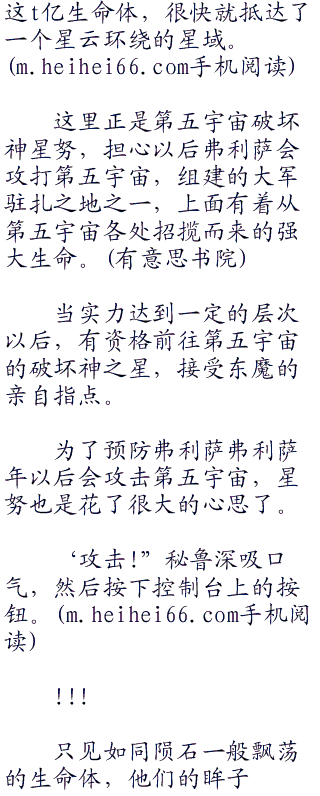 这t亿生命体，很快就抵达了
一个星云环绕的星域。
(m.heihei66.com手机阅读)
这里正是第五宇宙破坏
神星努，担心以后弗利萨会
攻打第五宇宙，组建的大军
驻扎之地之一，上面有着从
第五宇宙各处招揽而来的强
大生命。(有意思书院)
当实力达到一定的层次
以后，有资格前往第五宇宙
的破坏神之星，接受东魔的
亲自指点。
为了预防弗利萨弗利萨
年以后会攻击第五宇宙，星
努也是花了很大的心思了。
‘攻击!”秘鲁深吸口
气，然后按下控制台上的按
钮。(m.heihei66.com手机阅
读)
!!!
只见如同陨石一般飘荡
的生命体，他们的眸子